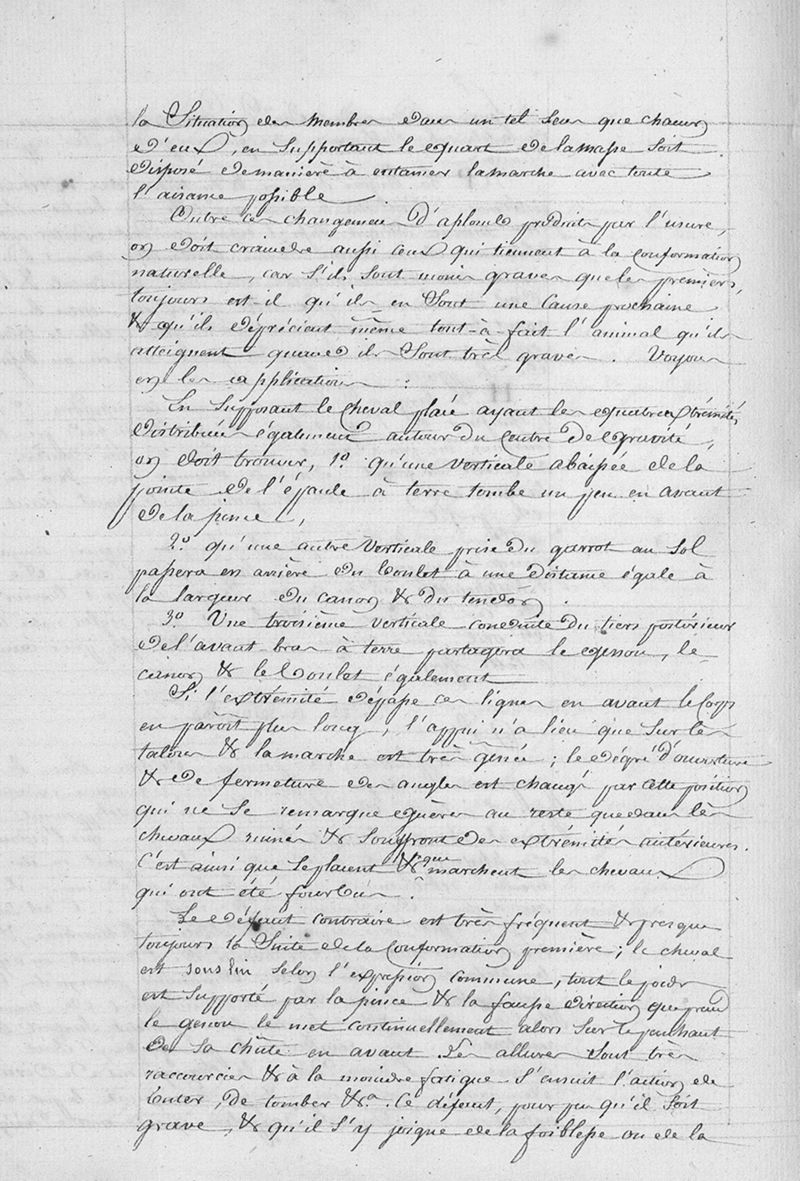 la Situation des membres dans un tel Sens que chacun
d'eux, en Supportant le quart de la masse Soit
disposé de manière à entamer la marche avec toute
l'aisance possible.
Outre ces changemens d'aplomb produits par l'usure,
on doit craindre aussi ceux qui tiennent à la conformation
naturelle, car S'ils Sont moins graves que les premiers,
toujours est-il qu'ils en Sont une Cause prochaine
& qu'ils déprécient même tout-à-fait l'animal qu'ils
atteignent quand ils Sont très graves. Voyons
en les applications :
En Supposant le Cheval placé ayant les quatre extrémités
distribuées également autour du Centre de Gravité,
on doit trouver, 1º. qu'une verticale abaissée de la
pointe de l'épaule à terre tombe un peu en avant
de la pince,
2º. qu'une autre Verticale prise du garrot au Sol
passera en arrière du boulet à une distance égale à
la largeur du canon & du tendon.
3º Une troisième verticale conduite du tiers postérieur
de l'avant bras à terre partagera le genou, le
canon & le boulet également
Si l'extrémité dépasse ces lignes en avant le Corps
en paroît plus long, l'appui n'a lieu que Sur les
talons & la marche est très gênée ; le dégré d'ouverture
& de fermeture des angles est changé par cette position
qui ne Se remarque guères au reste que dans les
chevaux ruinés & Souffrant des extrémités antérieures.
C'est ainsi que Se placent & que marchent les chevaux
qui ont été fourbus.
Le défaut contraire est très fréquent & presque
toujours la Suite de la Conformation première ; le cheval
est sous lui Selon l'expression commune, tout le poids
est Supporté par la pince & la fausse direction que prend
le genou le met continuellement alors Sur le penchant
de Sa chûte en avant. Les allures Sont très
raccourcies & à la moindre fatigue S'ensuit l'action de
buter, de tomber &ª. Ce défaut, pour peu qu'il Soit
grave, & qu'il S'y joigne de la foiblesse ou de la